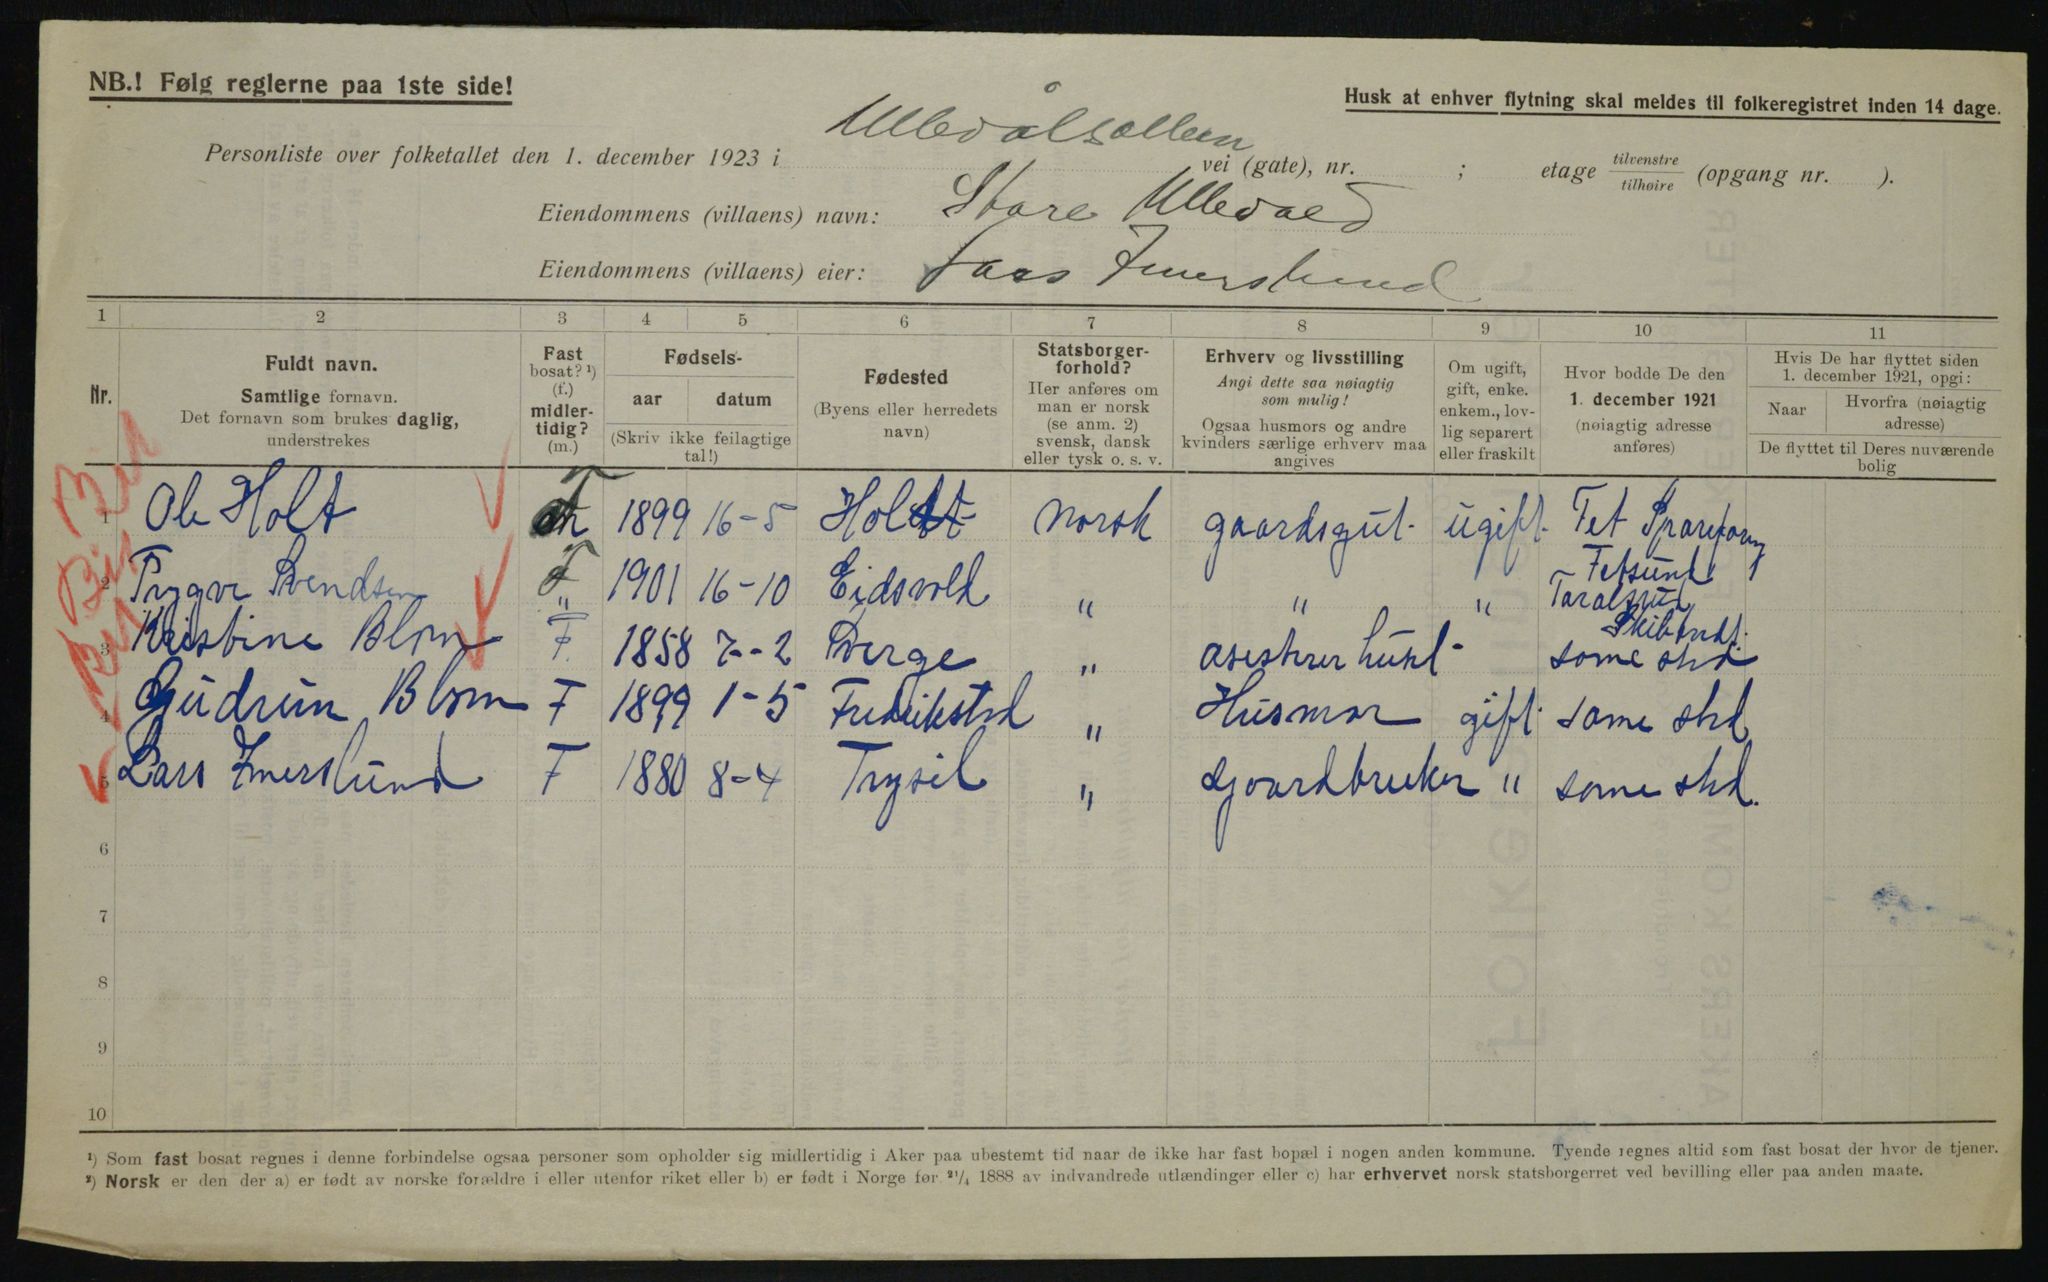 NB.! Følg reglerne paa 1ste side!
Husk at enhver flytning skal meldes til folkeregistret inden 14 dage.
Personliste over folketallet den 1. december 1923 i Ullevålsalleen vei (gate), nr. ; etage tilvenstre tilhøire (opgang nr. ).
Eiendommens (villaens) navn: Store Ullevaal
Eiendommens (villaens) eier: Lars Imerslund
1 2 3 4 5 6 7 8 9 10 11
Nr.
Fuldt navn.
Samtlige fornavn.
Det fornavn som brukes daglig,
understrekes
Fast
bosat? ¹)
(f.)
midler-
tidig?
(m.)
Fødsels-
aar datum
(Skriv ikke feilagtige
tal!)
Fødested
(Byens eller herredets
navn)
Statsborger-
forhold?
Her anføres om
man er norsk
(se anm. 2)
svensk, dansk
eller tysk o. s. v.
Erhverv og livsstilling
Angi dette saa nøiagtig
som mulig!
Ogsaa husmors og andre
kvinders særlige erhverv maa
angives
Om ugift,
gift, enke.
enkem., lov-
lig separert
eller fraskilt
Hvor bodde De den
1. december 1921
(nøiagtig adresse
anføres)
Hvis De har flyttet siden
1. december 1921, opgi:
Naar
Hvorfra (nøiagtig
adresse)
De flyttet til Deres nuværende
bolig
1 Ole Holt 1899 16-5 Holt norsk gaardsgut ugift Fet
Fetsund
2 Trygve Svendsen F „ 1901 16-10 Eidsvold „ „ „
3 Kristine Blom F. 1858 7-2 Sverge „ some std
4 Gudrun Blom F 1899 1-5 Fredrikstad „ Husmor gift some std
5 Lars Imerslund F 1880 8-4 Trysil „ gaardbruker „ some std.
6
7
8
9
10
¹) Som fast bosat regnes i denne forbindelse ogsaa personer som opholder sig midlertidig i Aker paa ubestemt tid naar de ikke har fast bopæl i nogen anden kommune. Tyende regnes altid som fast bosat der hvor de tjener.
²) Norsk er den der a) er født av norske forældre i eller utenfor riket eller b) er født i Norge før ²¹/₄ 1888 av indvandrede utlændinger eller c) har erhvervet norsk statsborgerret ved bevilling eller paa anden maate.